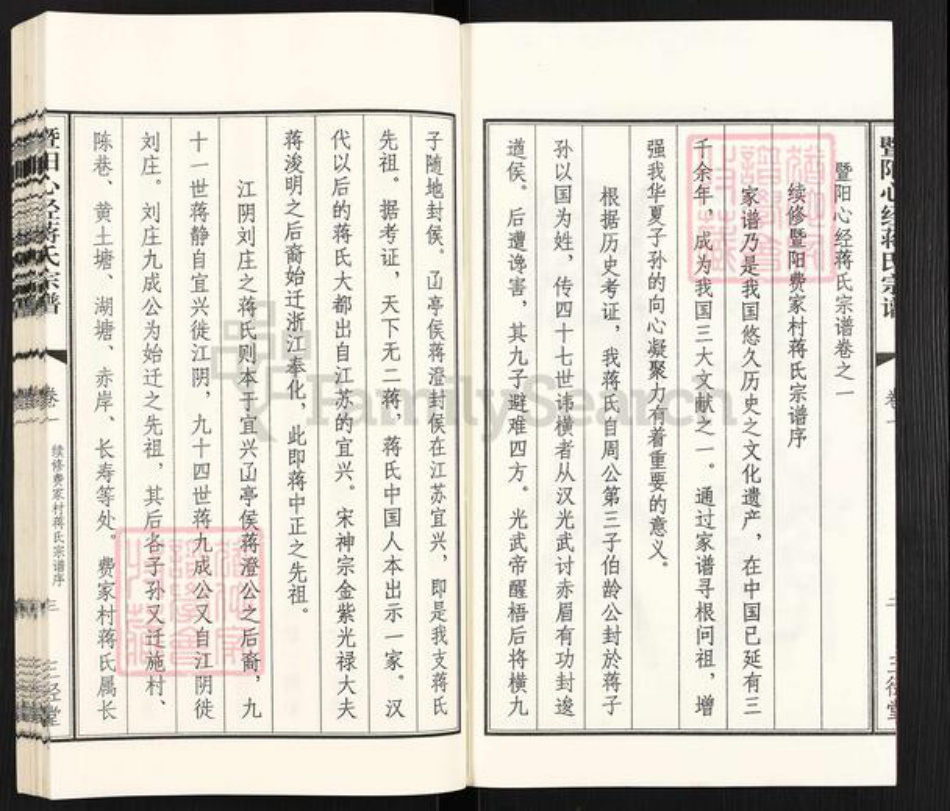 暨阳心经蒋氏宗谱
卷一
三径堂
暨阳心经蒋氏宗谱卷之一
续修暨阳费家村蒋氏宗谱序
家谱乃是我国悠久历史之文化遗产，在中国已延有三
千余年，成为我国三大文献之一。通过家谱寻根问祖，增
强我华夏子孙的向心凝聚力有着重要的意义。
根据历史考证，我蒋氏自周公第三子伯龄公封於蒋子
孙以国为姓，传四十七世讳横者从汉光武讨赤眉有功封逡
道侯。后遭谗害，其九子避难四方。光武帝醒梧后将横九
子随地封侯。㓛亭侯蒋澄封侯在江苏宜兴，即是我支蒋氏
先祖。据考证，天下无二蒋，蒋氏中国人本出示一家。汉
代以后的蒋氏大都出自江苏的宜兴。宋神宗金紫光禄大夫
蒋浚明之后裔始迁浙江奉化，此即蒋中正之先祖。
江阴刘庄之蒋氏则本于宜兴㓛亭侯蒋澄公之后裔，九
十一世蒋静自宜兴徙江阴，九十四世蒋九成公又自江阴徙
刘庄。刘庄九成公为始迁之先祖，其后各子孙又迁施村、
陈巷、黄土塘、湖塘、赤岸、长寿等处。费家村蒋氏属长
暨阳心经蒋氏宗谱
卷一
续修费家村蒋氏宗谱序
三
三径堂
FamilySearch